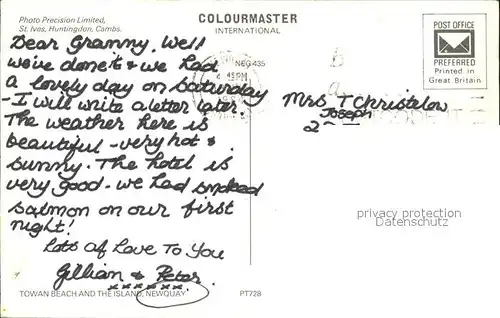 Photo Precision Limited,
St. Ives, Huntingdon, Cambs.
COLOURMASTER
INTERNATIONAL
POST OFFICE
PREFERRED
Printed in
Great Britain
Dear Granny, Well
we've done it & we had
a lovely day on Saturday
- I will write a letter later.
The weather here is
beautiful - very hot &
sunny. The hotel is
very good - we had smoked
salmon on our first
night!
Lots of Love To You
Gillian & Peter.
xxxxxx
NEG435
45PM
Mrs T Christelow
Joseph
2
privacy protection
Datenschutz
TOWAN BEACH AND THE ISLAND, NEWQUAY
PT728